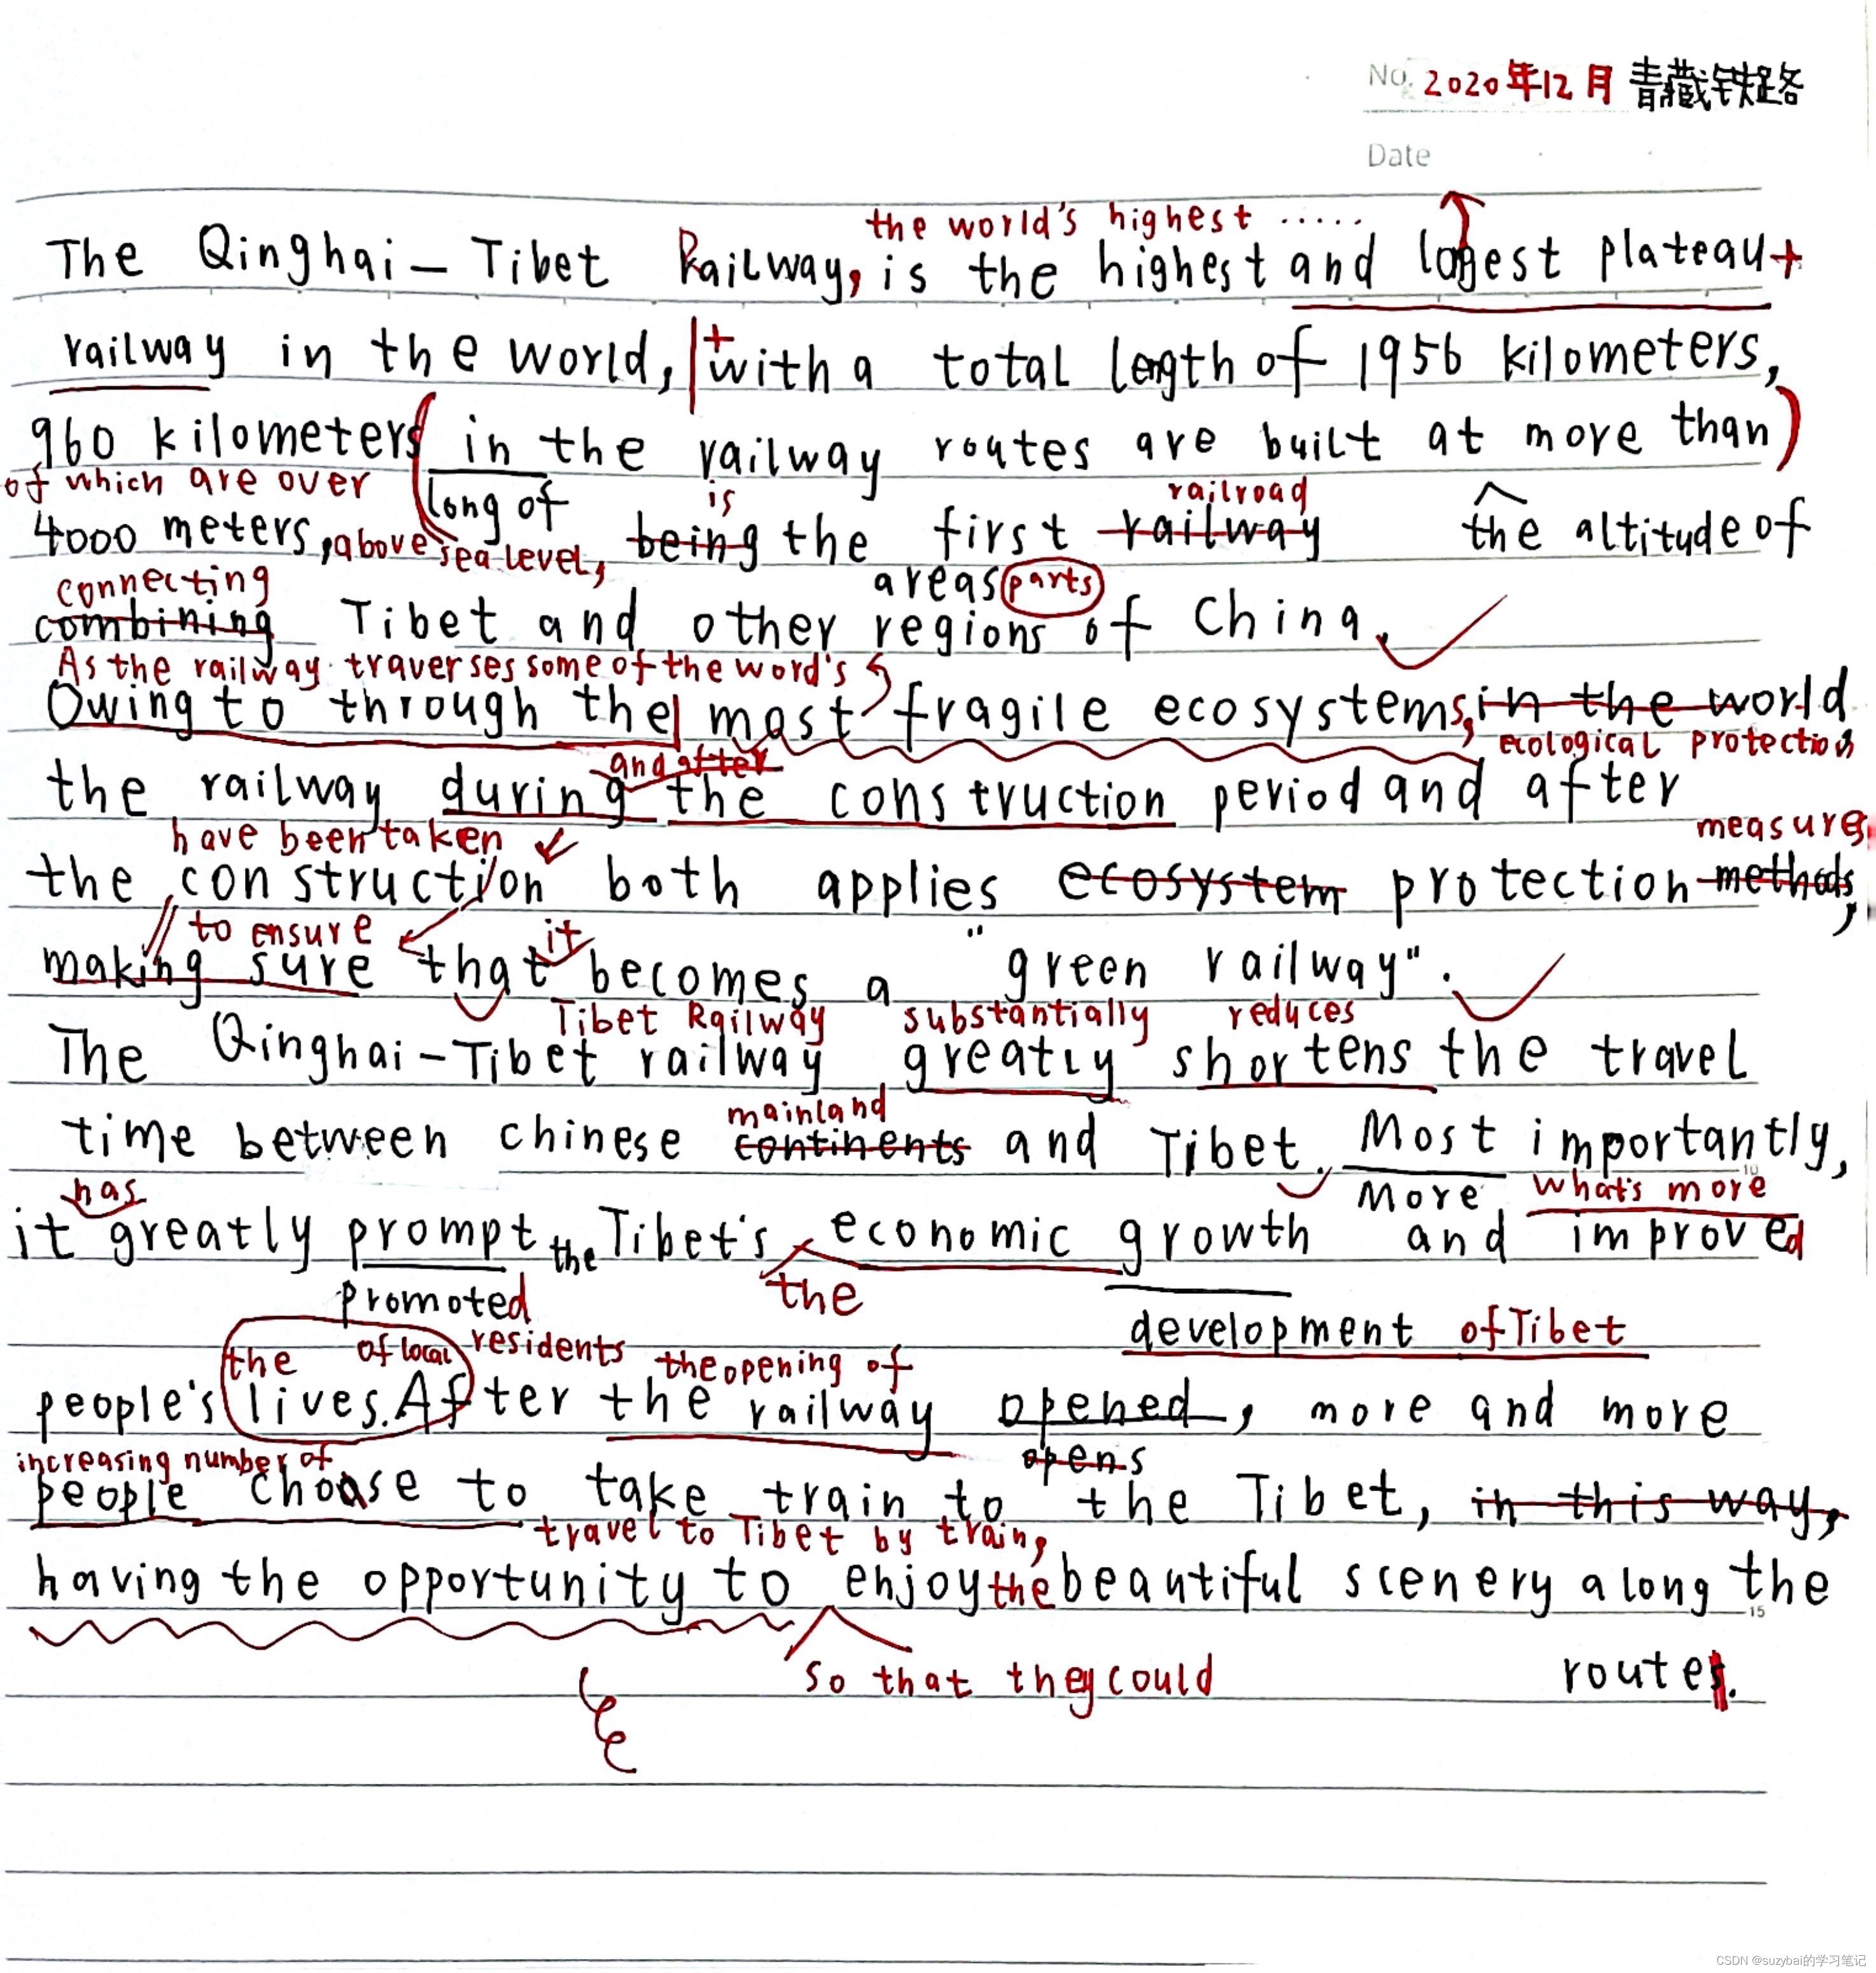 No. 2020年12月 青藏铁路
Date
the world's highest .....
The Qinghai-Tibet Railway, is the highest and longest plateau+
railway in the world, + with a total length of 1956 kilometers,
960 kilometers in the railway routes are built at more than
of which are over long of is railroad
4000 meters, above sea level, being the first railway the altitude of
connecting areas parts
combining Tibet and other regions of China.
As the railway traverses some of the word's
Owing to through the most fragile ecosystems, in the world
ecological protection
and after
the railway during the construction period and after
have been taken measures
the construction both applies ecosystem protection methods,
to ensure it
making sure that becomes a "green railway".
Tibet Railway substantially reduces
The Qinghai-Tibet railway greatly shortens the travel
mainland
time between chinese continents and Tibet. Most importantly,
has More what's more
it greatly prompt the Tibet's economic growth and improved
promoted the
development of Tibet
the of local residents the opening of
people's lives. After the railway opened, more and more
increasing number of opens
people choose to take train to the Tibet, in this way,
travel to Tibet by train,
having the opportunity to enjoy the beautiful scenery along the
so that they could routes.
10
15
CSDN @suzybai的学习笔记